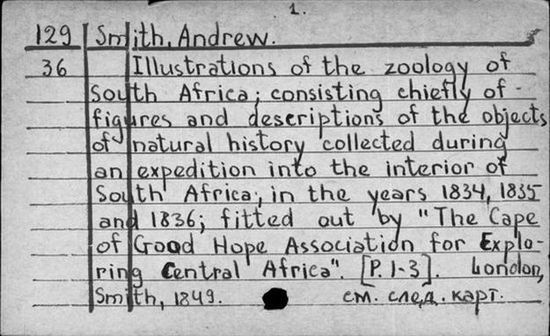 1.
129 Smith, Andrew.
36 Illustrations of the zoology of
South Africa; consisting chiefly of
figures and descriptions of the objects
of natural history collected during
an expedition into the interior of
South Africa, in the years 1834, 1835
and 1836; fitted out by "The Cape
of Good Hope Association for Explo-
ring Central Africa". [P. 1-3]. London,
Smith, 1849. см. след. карт.